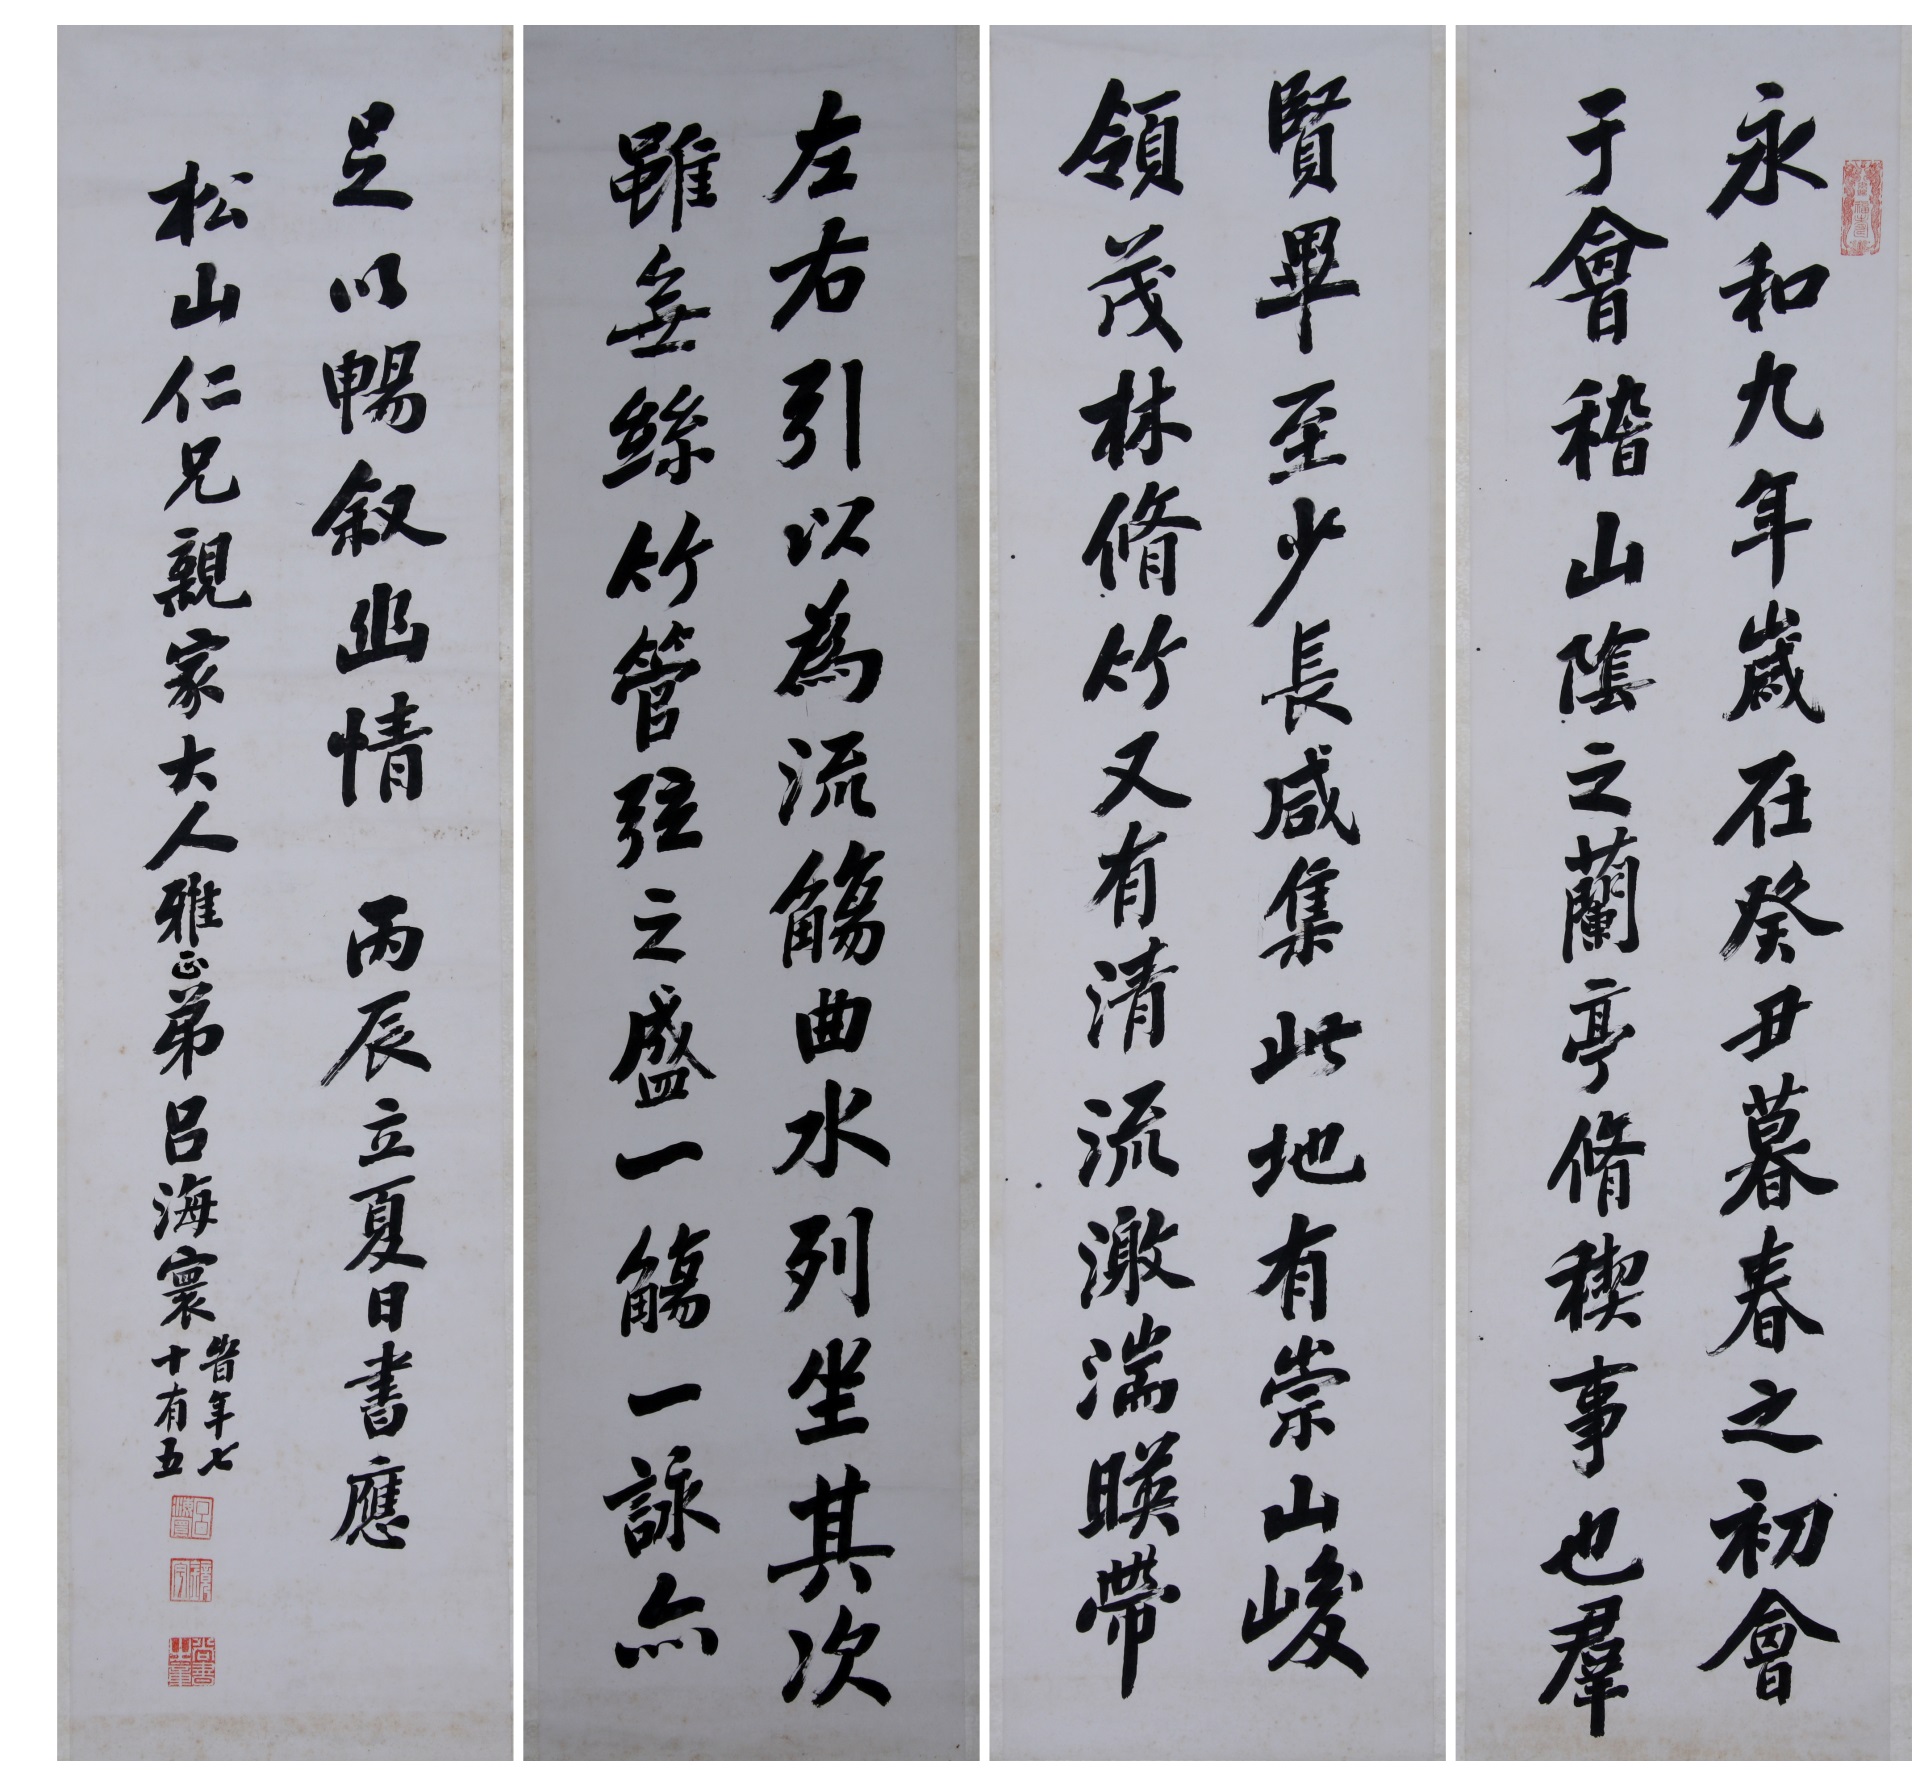 永和九年歲在癸丑暮春之初會
于會稽山陰之蘭亭脩稧事也羣
賢畢至少長咸集此地有崇山峻
領茂林脩竹又有清流激湍暎帶
左右引以為流觴曲水列坐其次
雖無絲竹管弦之盛一觴一詠亦
足以暢叙幽情 丙辰立夏日書應
松山仁兄親家大人雅正弟呂海寰
時年七
十有五